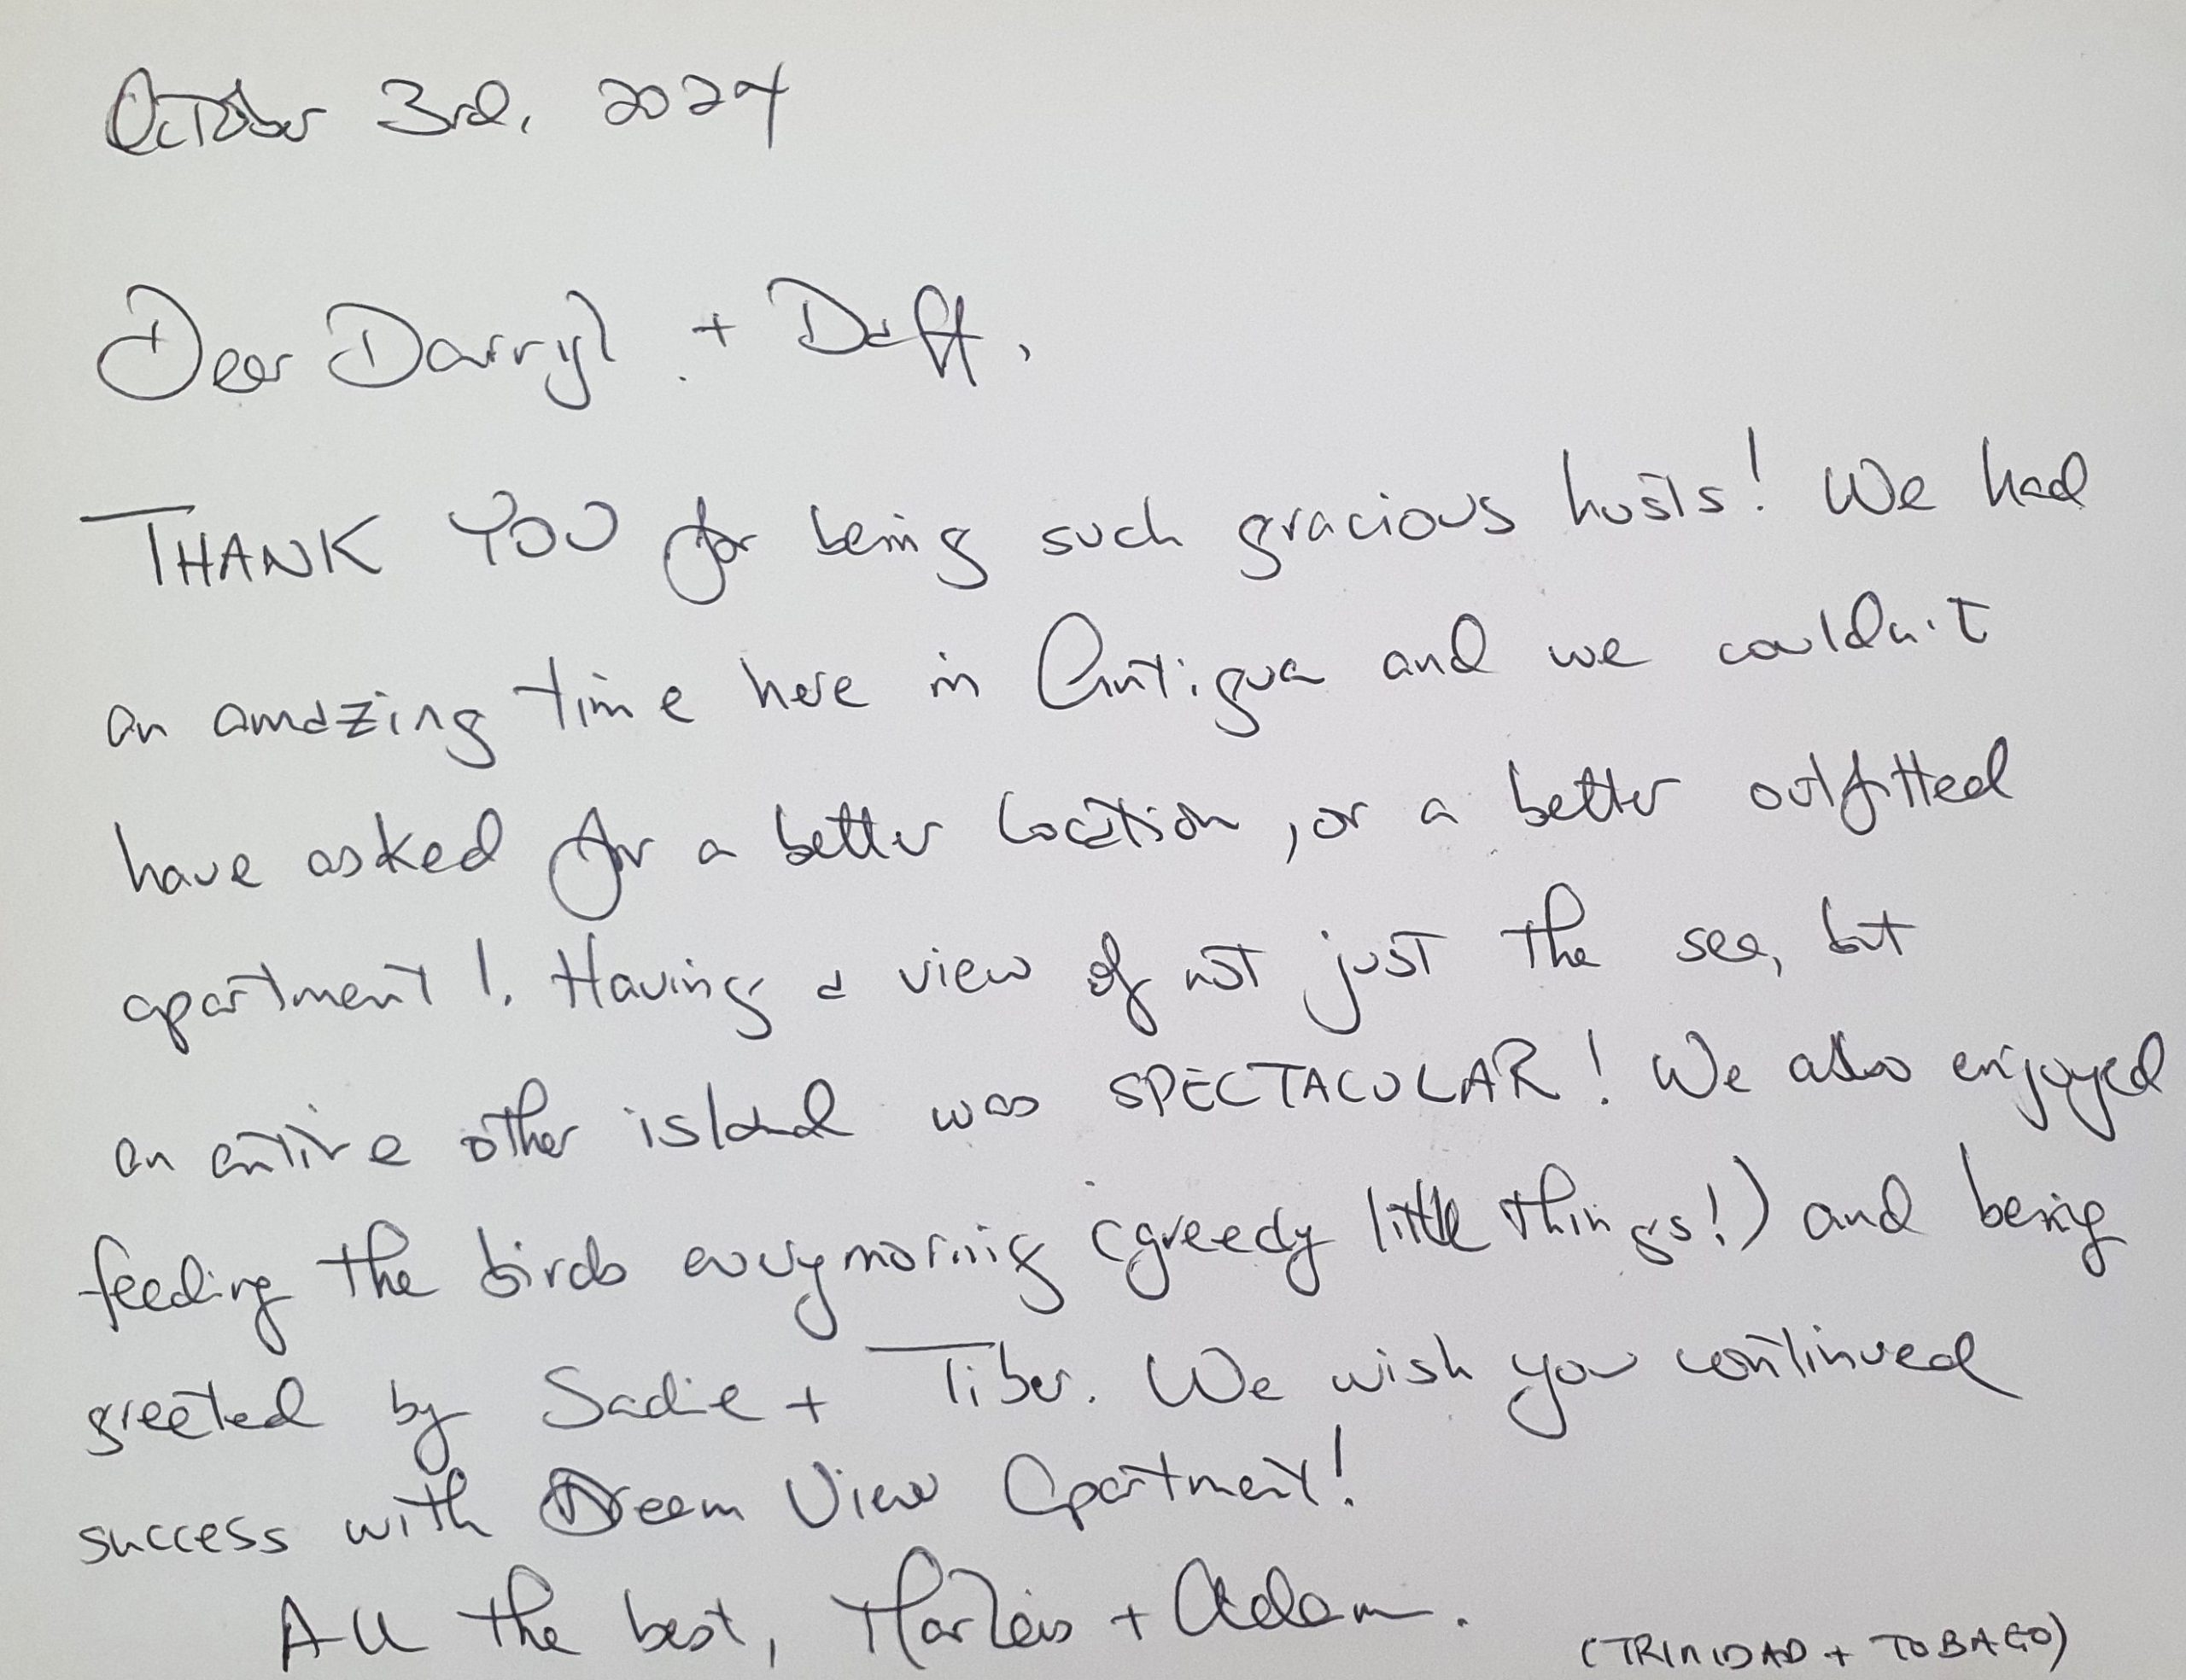 October 3rd, 2024
Dear Darryl + Daff,
THANK YOU for being such gracious hosts! We had
an amazing time here in Antigua and we couldn't
have asked for a better location, or a better outfitted
apartment!. Having a view of not just the sea, but
an entire other island was SPECTACULAR! We also enjoyed
feeding the birds every morning (greedy little things!) and being
greeted by Sadie + Tiber. We wish you continued
success with Dream View Apartment!
All the best, + Adam.
(TRINIDAD + TOBAGO)